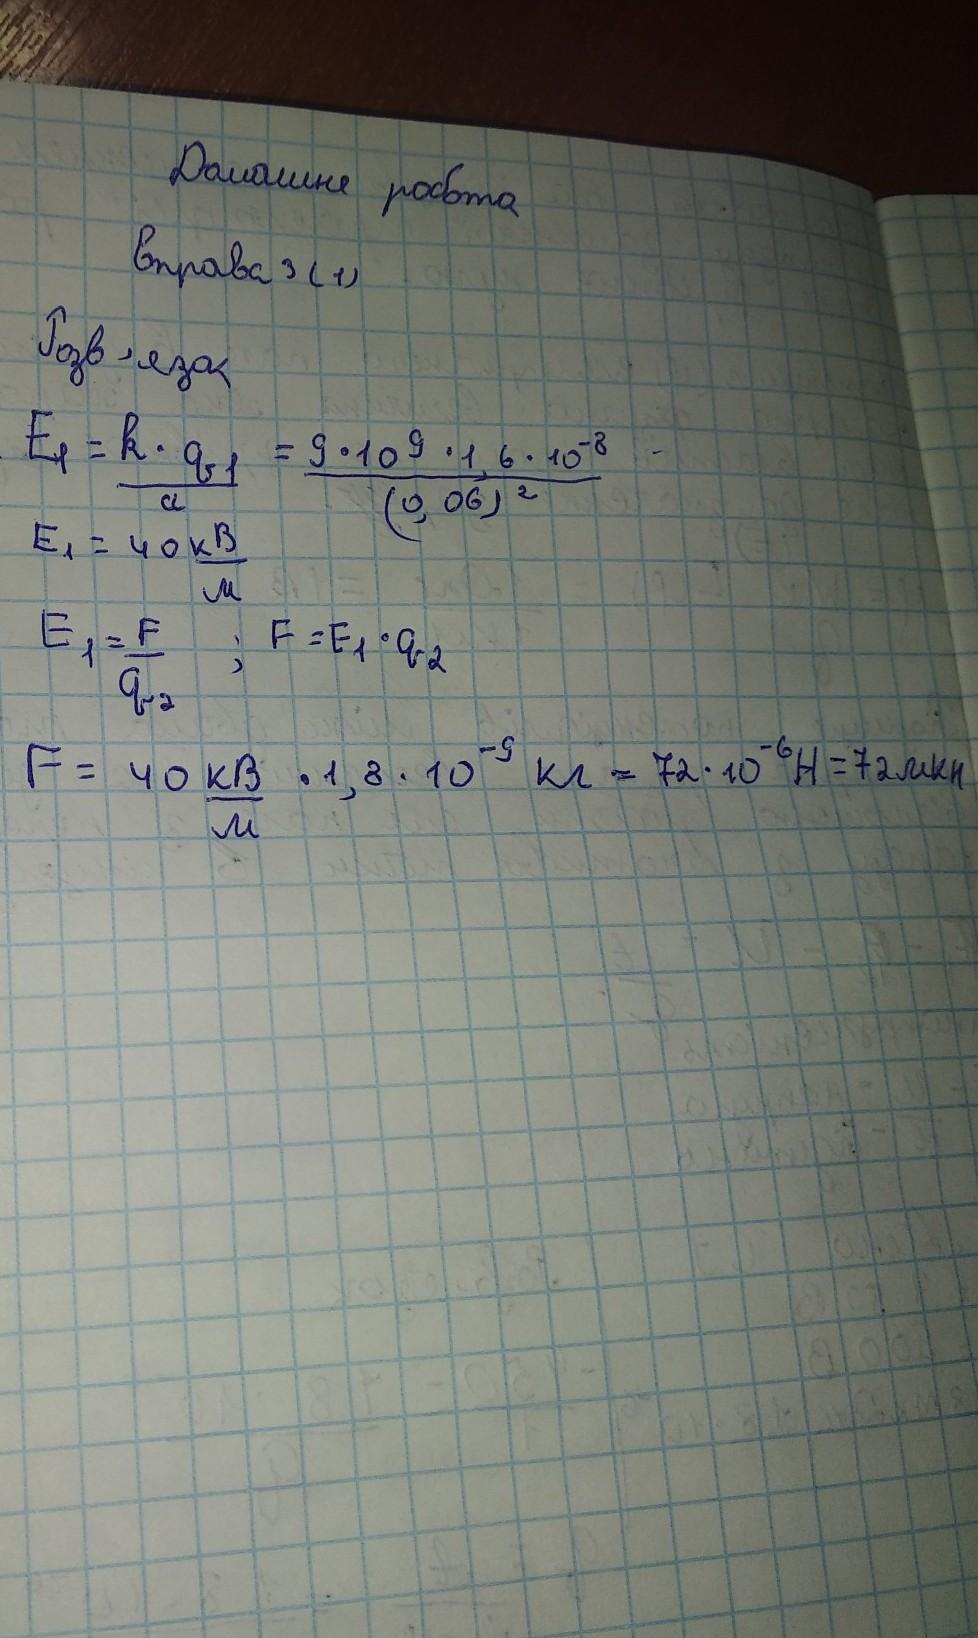 Домашнє робота
Вправа 3 (1)
Розв'язок
E₁ = k · q₁ / a = 9 · 10⁹ · 1,6 · 10⁻⁸ / (0,06)²
E₁ = 40 кВ/м
E₁ = F/q₂ ; F = E₁ · q₂
F = 40 кВ/м · 1,8 · 10⁻⁹ кл = 72 · 10⁻⁶ Н = 72 мкн